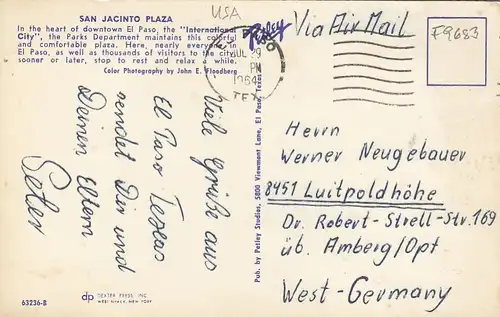 SAN JACINTO PLAZA
In the heart of downtown El Paso, the "International
City", the Parks Department maintains this colorful
and comfortable plaza. Here, nearly everyone in
El Paso, as well as thousands of visitors to the city
sooner or later, stop to rest and relax a while.
Color Photography by John E. Floodberg
USA
Petley
JUL 29
PM
1964
TEX
Via Air Mail
F9683
Viele Grüße aus
El Paso Texas
sendet Dir und
Deinen Eltern
Peter
Pub. by Petley Studios, 5800 Viewmont Lane, El Paso, Texas
Herrn
Werner Neugebauer
8451 Luitpoldhöhe
Dr. Robert-Strell-Str. 169
üb. Amberg/Opf
West-Germany
63236-B
dp DEXTER PRESS, INC.
WEST NYACK, NEW YORK